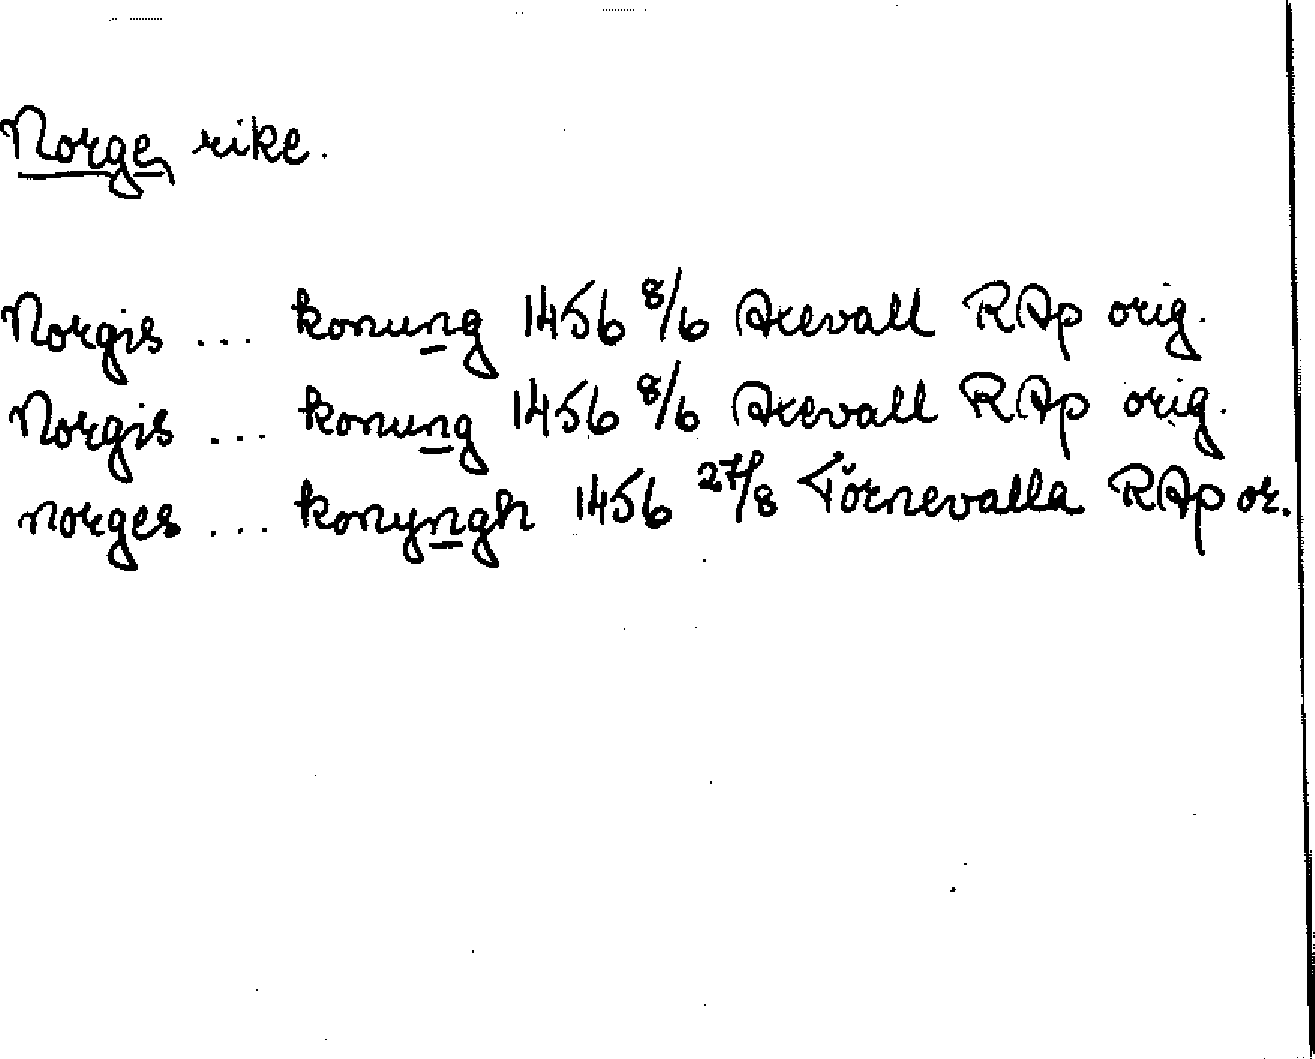 Norge, rike.
Norgis ... konung 1456 8/6 Axevall RAp orig.
Norgis ... konung 1456 8/6 Axevall RAp orig.
norges ... konyngh 1456 27/8 Törnevalla RAp or.